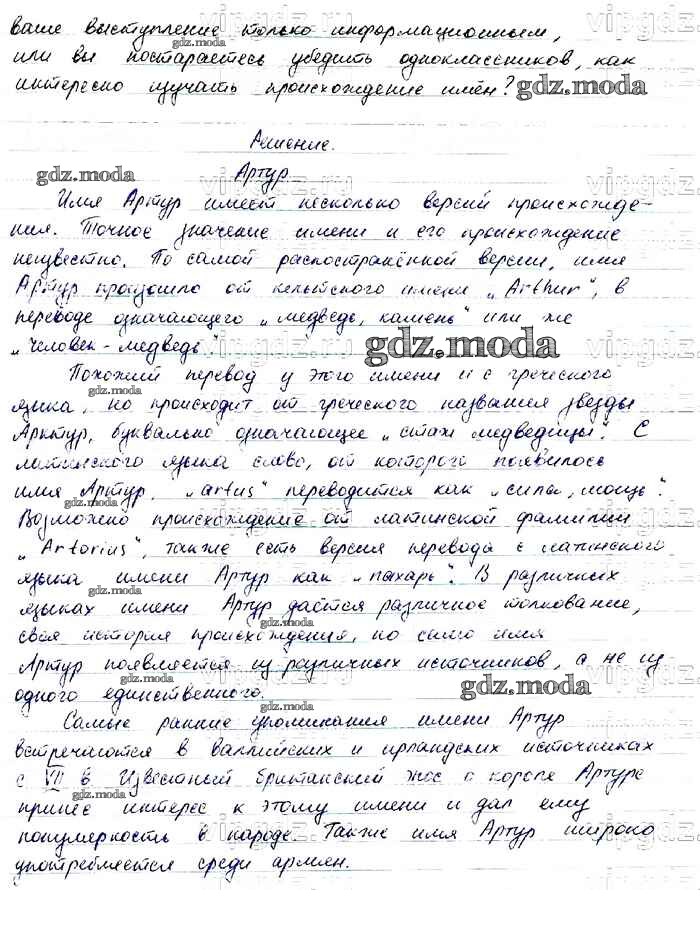 ваше выступление только информационным,
или вы постараетесь убедить одноклассников, как
интересно изучать происхождение имён?
Решение.
Артур
Имя Артур имеет несколько версий происхожде-
ния. Точное значение имени и его происхождение
неизвестно. По самой распостранённой версии, имя
Артур произошло от кельтского имени „Arthur", в
переводе означающего „медведь, камень" или же
„человек-медведь".
Похожий перевод у этого имени и с греческого
языка, но происходит от греческого названия звезды
Арктур, буквально означающее „страж медведицы". С
латинского языка слово, от которого появилось
имя Артур, „artus" переводится как „сила, мощь".
Возможно происхождение от латинской фамилии
„Artorius", также есть версия перевода с латинского
языка имени Артур как „пахарь". В различных
языках имени Артур даётся различное толкование,
своя история происхождения, но само имя
Артур появляется из различных источников, а не из
одного единственного.
Самые ранние упоминания имени Артур
встречаются в валлийских и ирландских источниках
с VII в. Известный британский эпос о короле Артуре
принёс интерес к этому имени и дал ему
популярность в народе. Также имя Артур широко
употребляется среди армян.